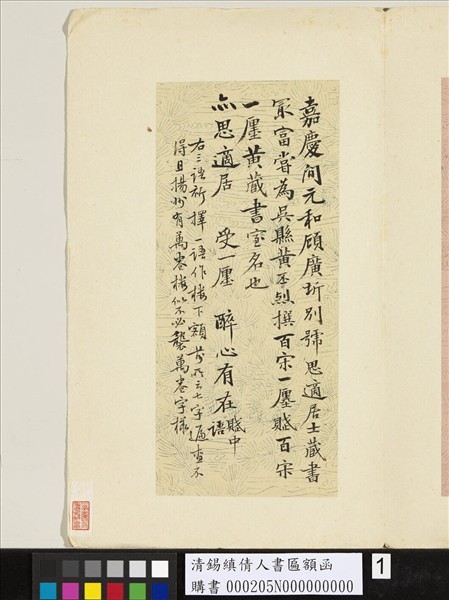 嘉慶间元和顧廣圻別號思適居士藏書
冣富嘗為吳縣黃丕烈撰百宋一廛賦百宋
一廛黃藏書室名也
亦思適居 受一廛 醉心有在賦中語
右三語祈擇一語作樓下額昔所云七字遍查不
得且揚州有萬卷樓似不必襲萬卷字樣
清錫縝倩人書區額函
購書 000205N000000000
1